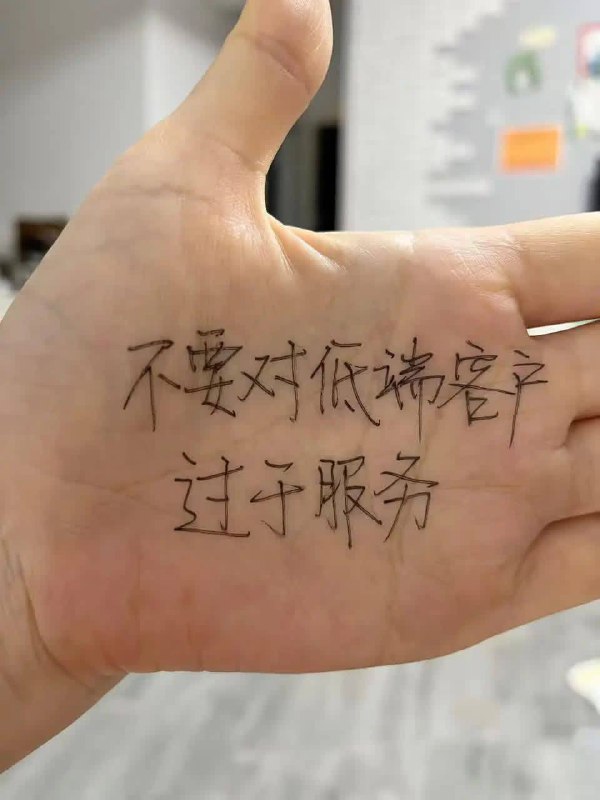 不要对低端客户
过于服务